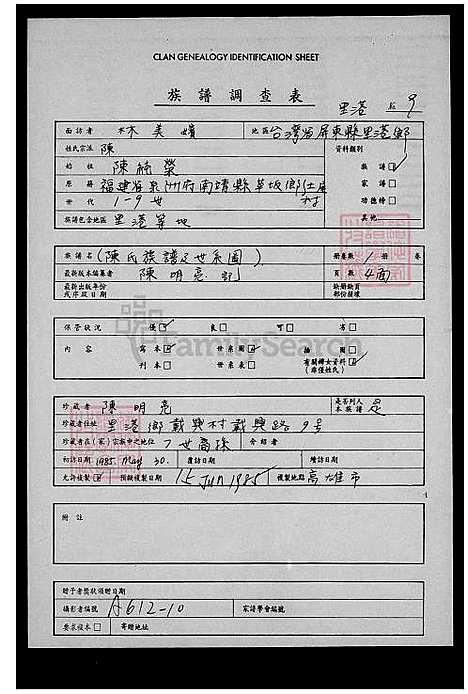 CLAN GENEALOGY IDENTIFICATION SHEET
族譜調查表
里港 9
面訪者 林美 地區 台灣省屏東縣里港鄉
姓氏宗派 陳 資料類別
始祖 陳純榮 族譜
原籍 福建省 州府南靖縣草坂鄉 村 家譜
世代 1-9世 功德榜
族譜包含地區 里港等地 其他
族譜名 (陳氏族譜及世系圖) 冊卷數 1 卷
最新版本編纂者 陳明亮 記 頁數 4面
最新出版年份或序跋日期 缺冊缺頁部份摘錄
保管狀況 優 良 可 劣
內容 寫本 世系圖 插圖
刊本 世系表 有關婦女資料(非僅姓氏)
珍藏者 陳明亮 是否列入本族譜 是
珍藏者住址 里港鄉載興村載興路9号
珍藏者在(家)宗族中之地位 7世裔孫 介紹者
初訪日期 1985. May 30. 覆訪日期 增訪日期
允許複製 預擬複製日期 15 Jun 1985 複製地點 高雄市
附註
贈予者獎狀頒贈日期
攝影者編號 A612-10 家譜學會編號
要求複本 寄贈地址
FamilySearch